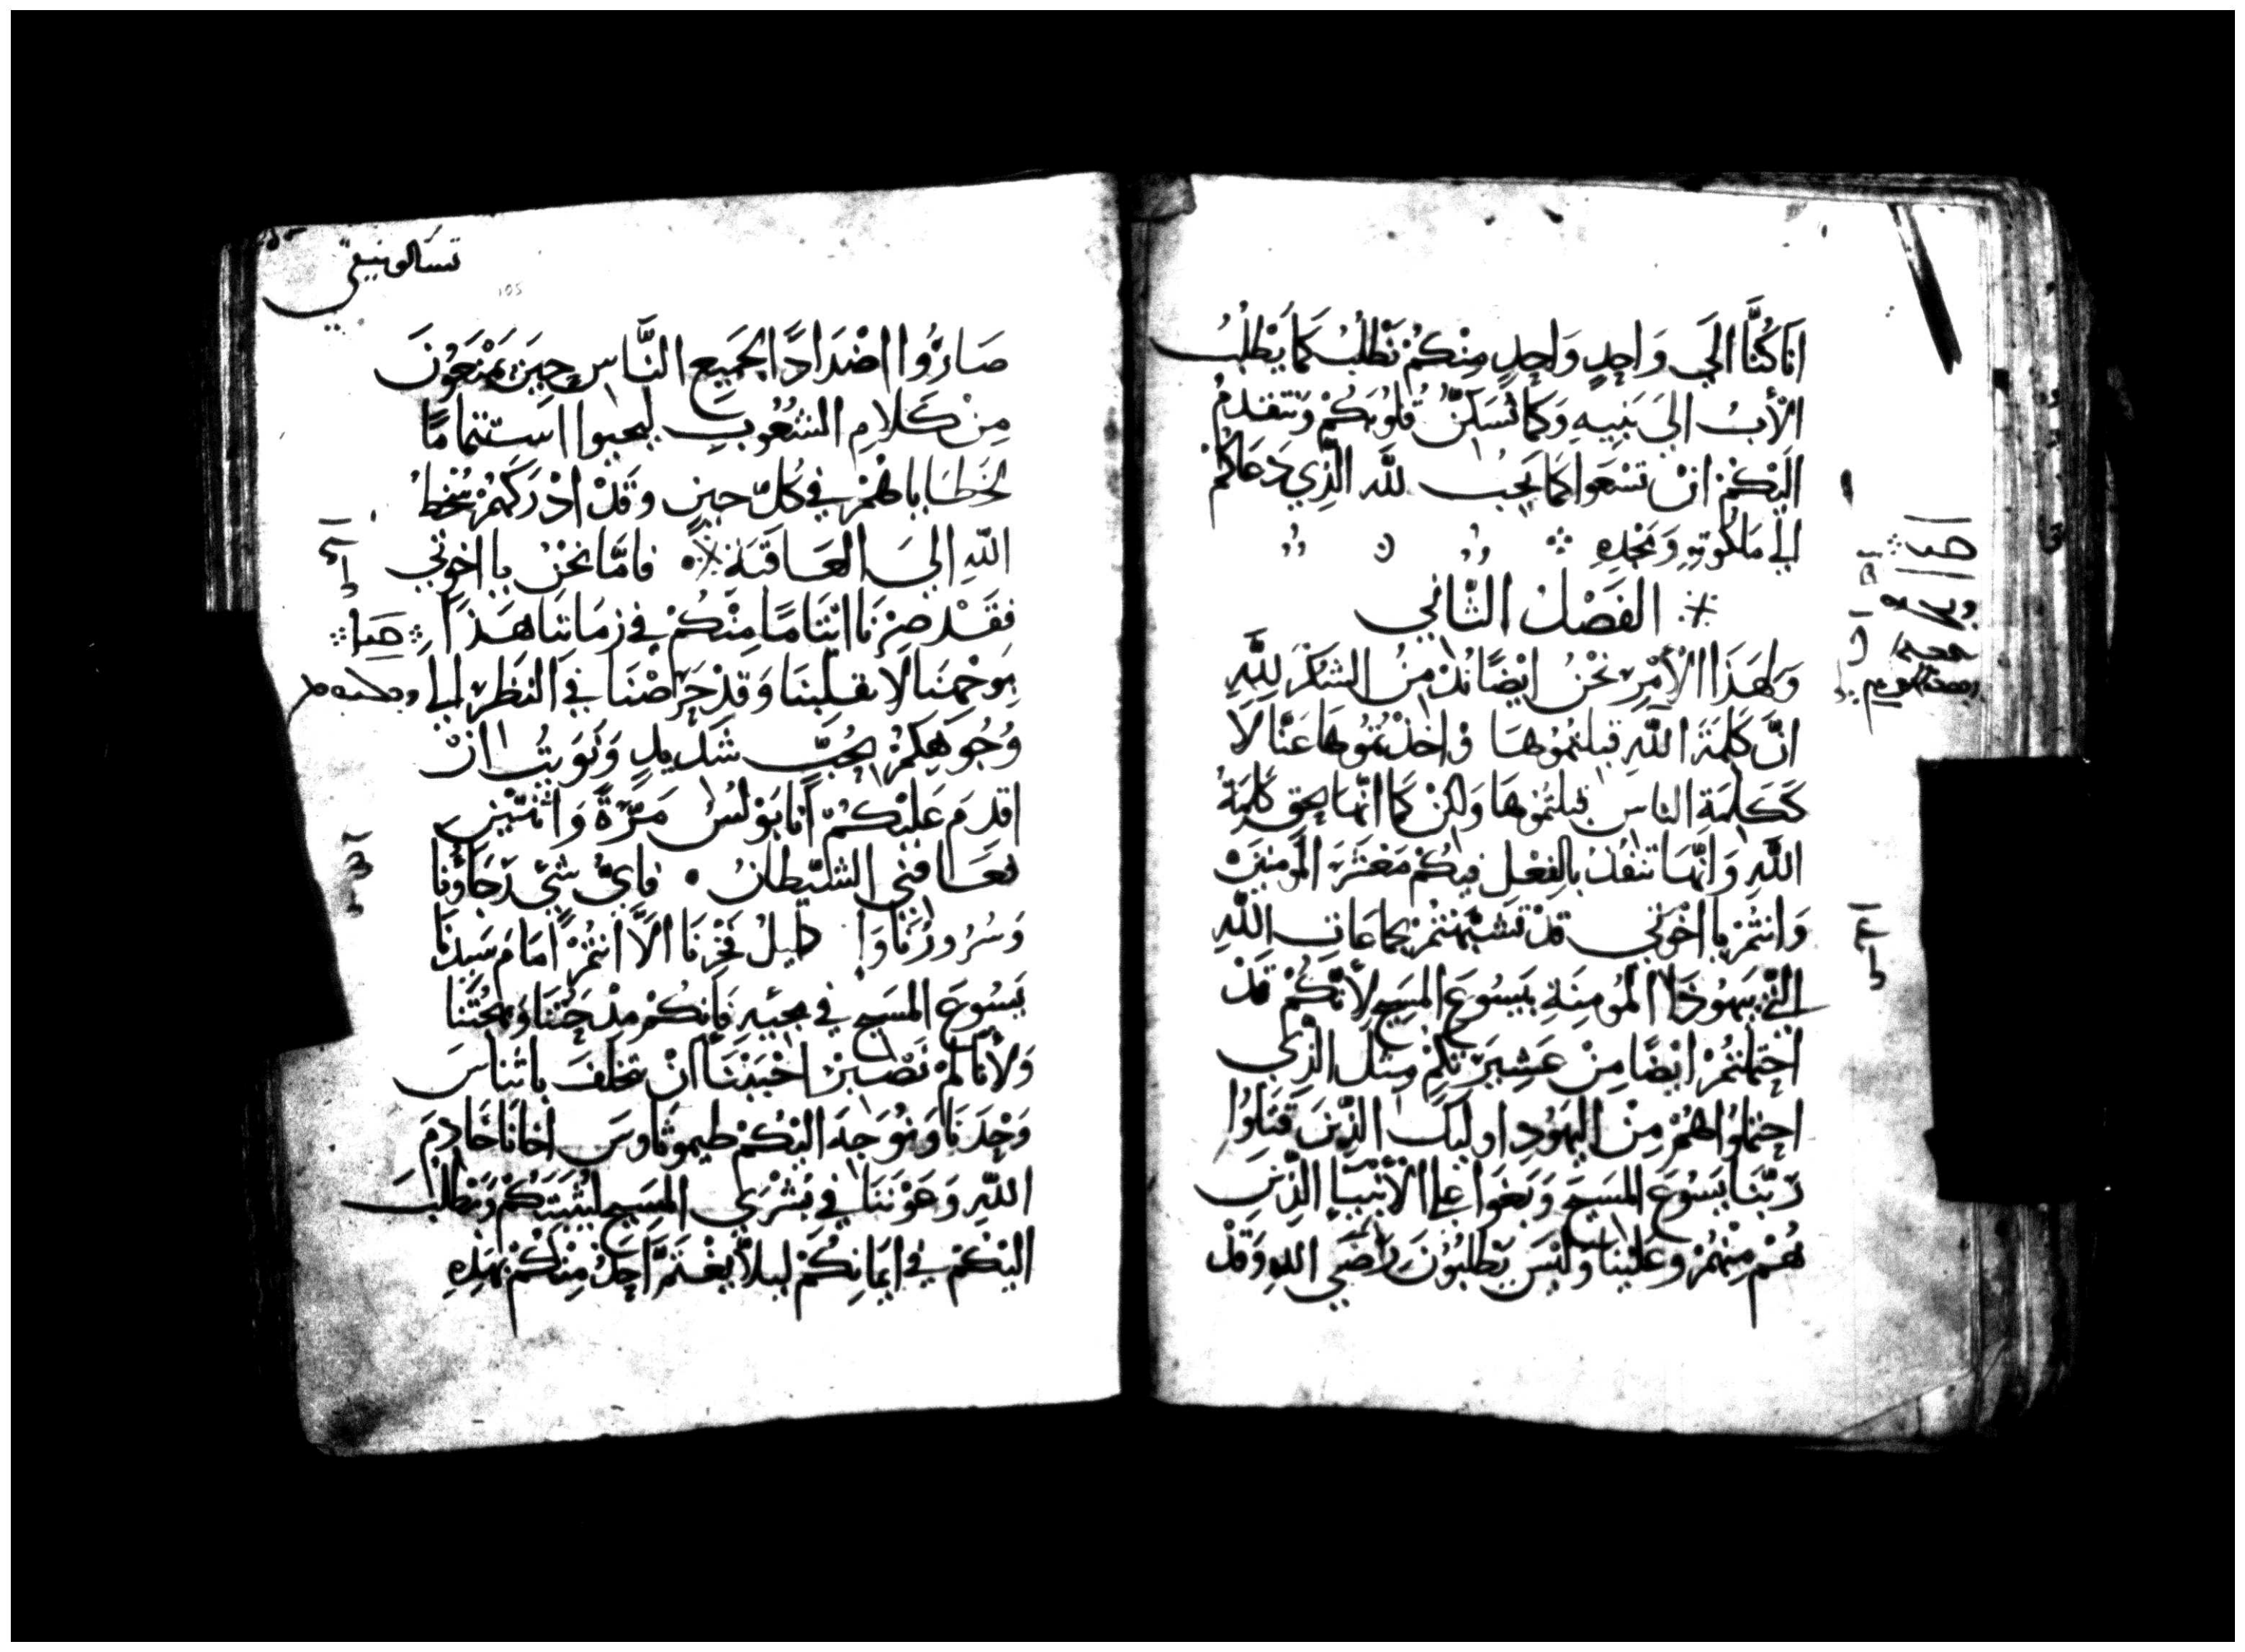 انا كُنَّا الَي وَاحِدٍ وَاحِدٍ مِنْكُمْ نَطْلُبُ كَمَا يَطْلُبُ
الأَبُ الَيَ بَنِيهِ وَكما نُسَكِّنُ قُلُوبَكُمْ وَنتقدمُ
الَيْكُمْ انْ تسْعَوا كمَا يَجِب للهِ الَّذِي دَعَاكُمْ
الي مَلكُوتِهِ وَمَجْدِهِ
الفَصْلُ الثَّاني
وَلِهَذَا الأَمْرِ نَحْنُ ايْضًا نُدمِنُ الشكرَ لِلَّهِ
انَّ كَلِمَةَ اللَّهِ قبلتُمُوْهَا وَاخَذْتُمُوهَا عَنَّا لاَ
كَكَلِمَةِ الناسِ قبلتُمُوْهَا وَلكنْ كمَا انَّهَا بحقٍ كَلِمَةُ
اللَّهِ وَانَّهَا تنفُذ بالفِعْلِ فيكُمْ مَعْشَرَ المُومنِينَ
وَانتُمْ يا اخْوَتي قدْ تَشَبَّهْتُمْ بجمَاعَاتِ اللَّهِ
التي بيَهُوذَا المُومِنَةِ بيَسُوعَ المَسِيحِ لأَنَّكُمْ قدْ
احْتَمَلتُمْ ايْضًا مِنْ عَشِيرَتِكُمْ مِثلَ الَّذِي
احتَمَلُوا هُمْ مِنَ اليَهُودِ اوليك الَّذِينَ قَتَلُوا
رَبَّنَا يَسُوعَ المَسِيحَ وَبَغَوا علي الأَنْبيَا الَّذِينَ
هُمْ مِنْهُمْ وَعَلَيْنَا وَلَيْسَ يَطْلبُوْنَ رضَي اللهِ وَقدْ
تسَالونيقي
105
صَارُوا اضْدَادًا لجَمِيعِ النَّاسِ حِينَ يَمْنَعُوْنَ
مِنْ كَلَامِ الشعُوْبِ ليحيوا استتمامًا
لخَطَايَاهُمْ في كُلِّ حِينٍ وَقَدْ ادْرَكَهُمْ سُخْطُ
اللَّهِ اليَ العَاقَبَة فامَّا نَحْنُ يا اخوتي
فقَدْ صِرْنَا ايتَامًا مِنْكُمْ في زمَاننَا هَذَا
بوجُوهِنَا لا بقلبنَا وَقدْ حَرَصْنَا في النظَرِ الي
وُجُوهِكُمْ بحُبٍّ شَدِيدٍ وَنَوَيتُ انْ
اقدمَ عَلَيْكُمْ انَا بَوْلُسُ مَرَّةً وَاثنتيْنِ
فعَاقني الشيْطانُ فايُّ شيٍ رَجَاؤُنَا
وَسُرُورُنَا وَاكليلُ فَخْرِنَا الاَّ انتُمْ امَامَ سَيدِنَا
يَسُوعَ المَسِيحِ في مجيَهِ فَانكُمْ مَدْحَتُنَا وَبهْجَتُنَا
وَلأَنَّا لمْ نَصْبِرْ احْبَبْنَا انْ نخلفَ باثيناسَ
وَحْدَنَا وَنُوَجهَ اليْكُمْ طيمُوثاوسَ اخانَا خَادِمَ
اللَّهِ وَعَوْننَا في بُشْرَي المَسِيحِ ليُثَبِّتَكُمْ وَيَطْلبَ
اليْكُمْ في ايمَانكُمْ ليلاَّ يغْتَمَّ احَدٌ مِنْكُمْ بهَذِهِ